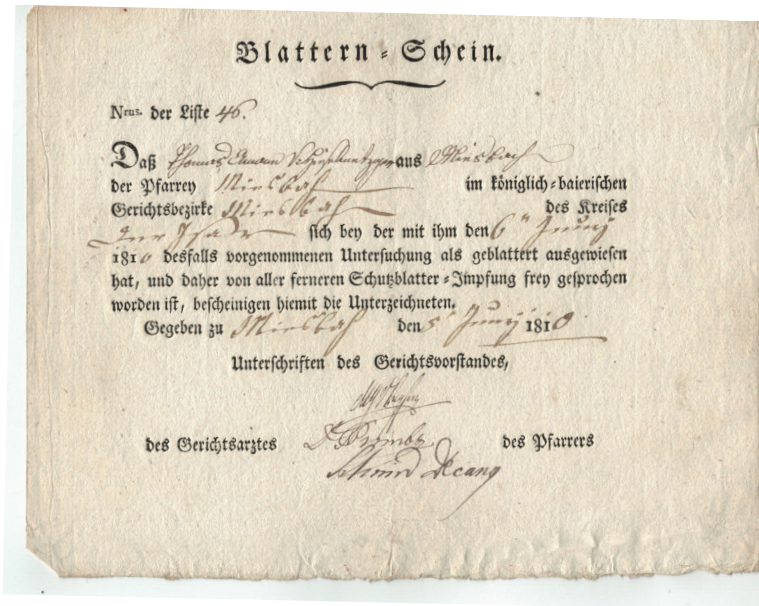 Blattern-Schein.
Nrus. der Liste 46.
Daß aus Miesbach
der Pfarrey Miesbach im königlich-baierischen
Gerichtsbezirke Miesbach des Kreises
der Isar sich bey der mit ihm den 6 Juny
1810 desfalls vorgenommenen Untersuchung als geblattert ausgewiesen
hat, und daher von aller ferneren Schutzblatter-Impfung frey gesprochen
worden ist, bescheinigen hiemit die Unterzeichneten.
Gegeben zu Miesbach den Juny 1810
Unterschriften des Gerichtsvorstandes,
des Gerichtsarztes des Pfarrers